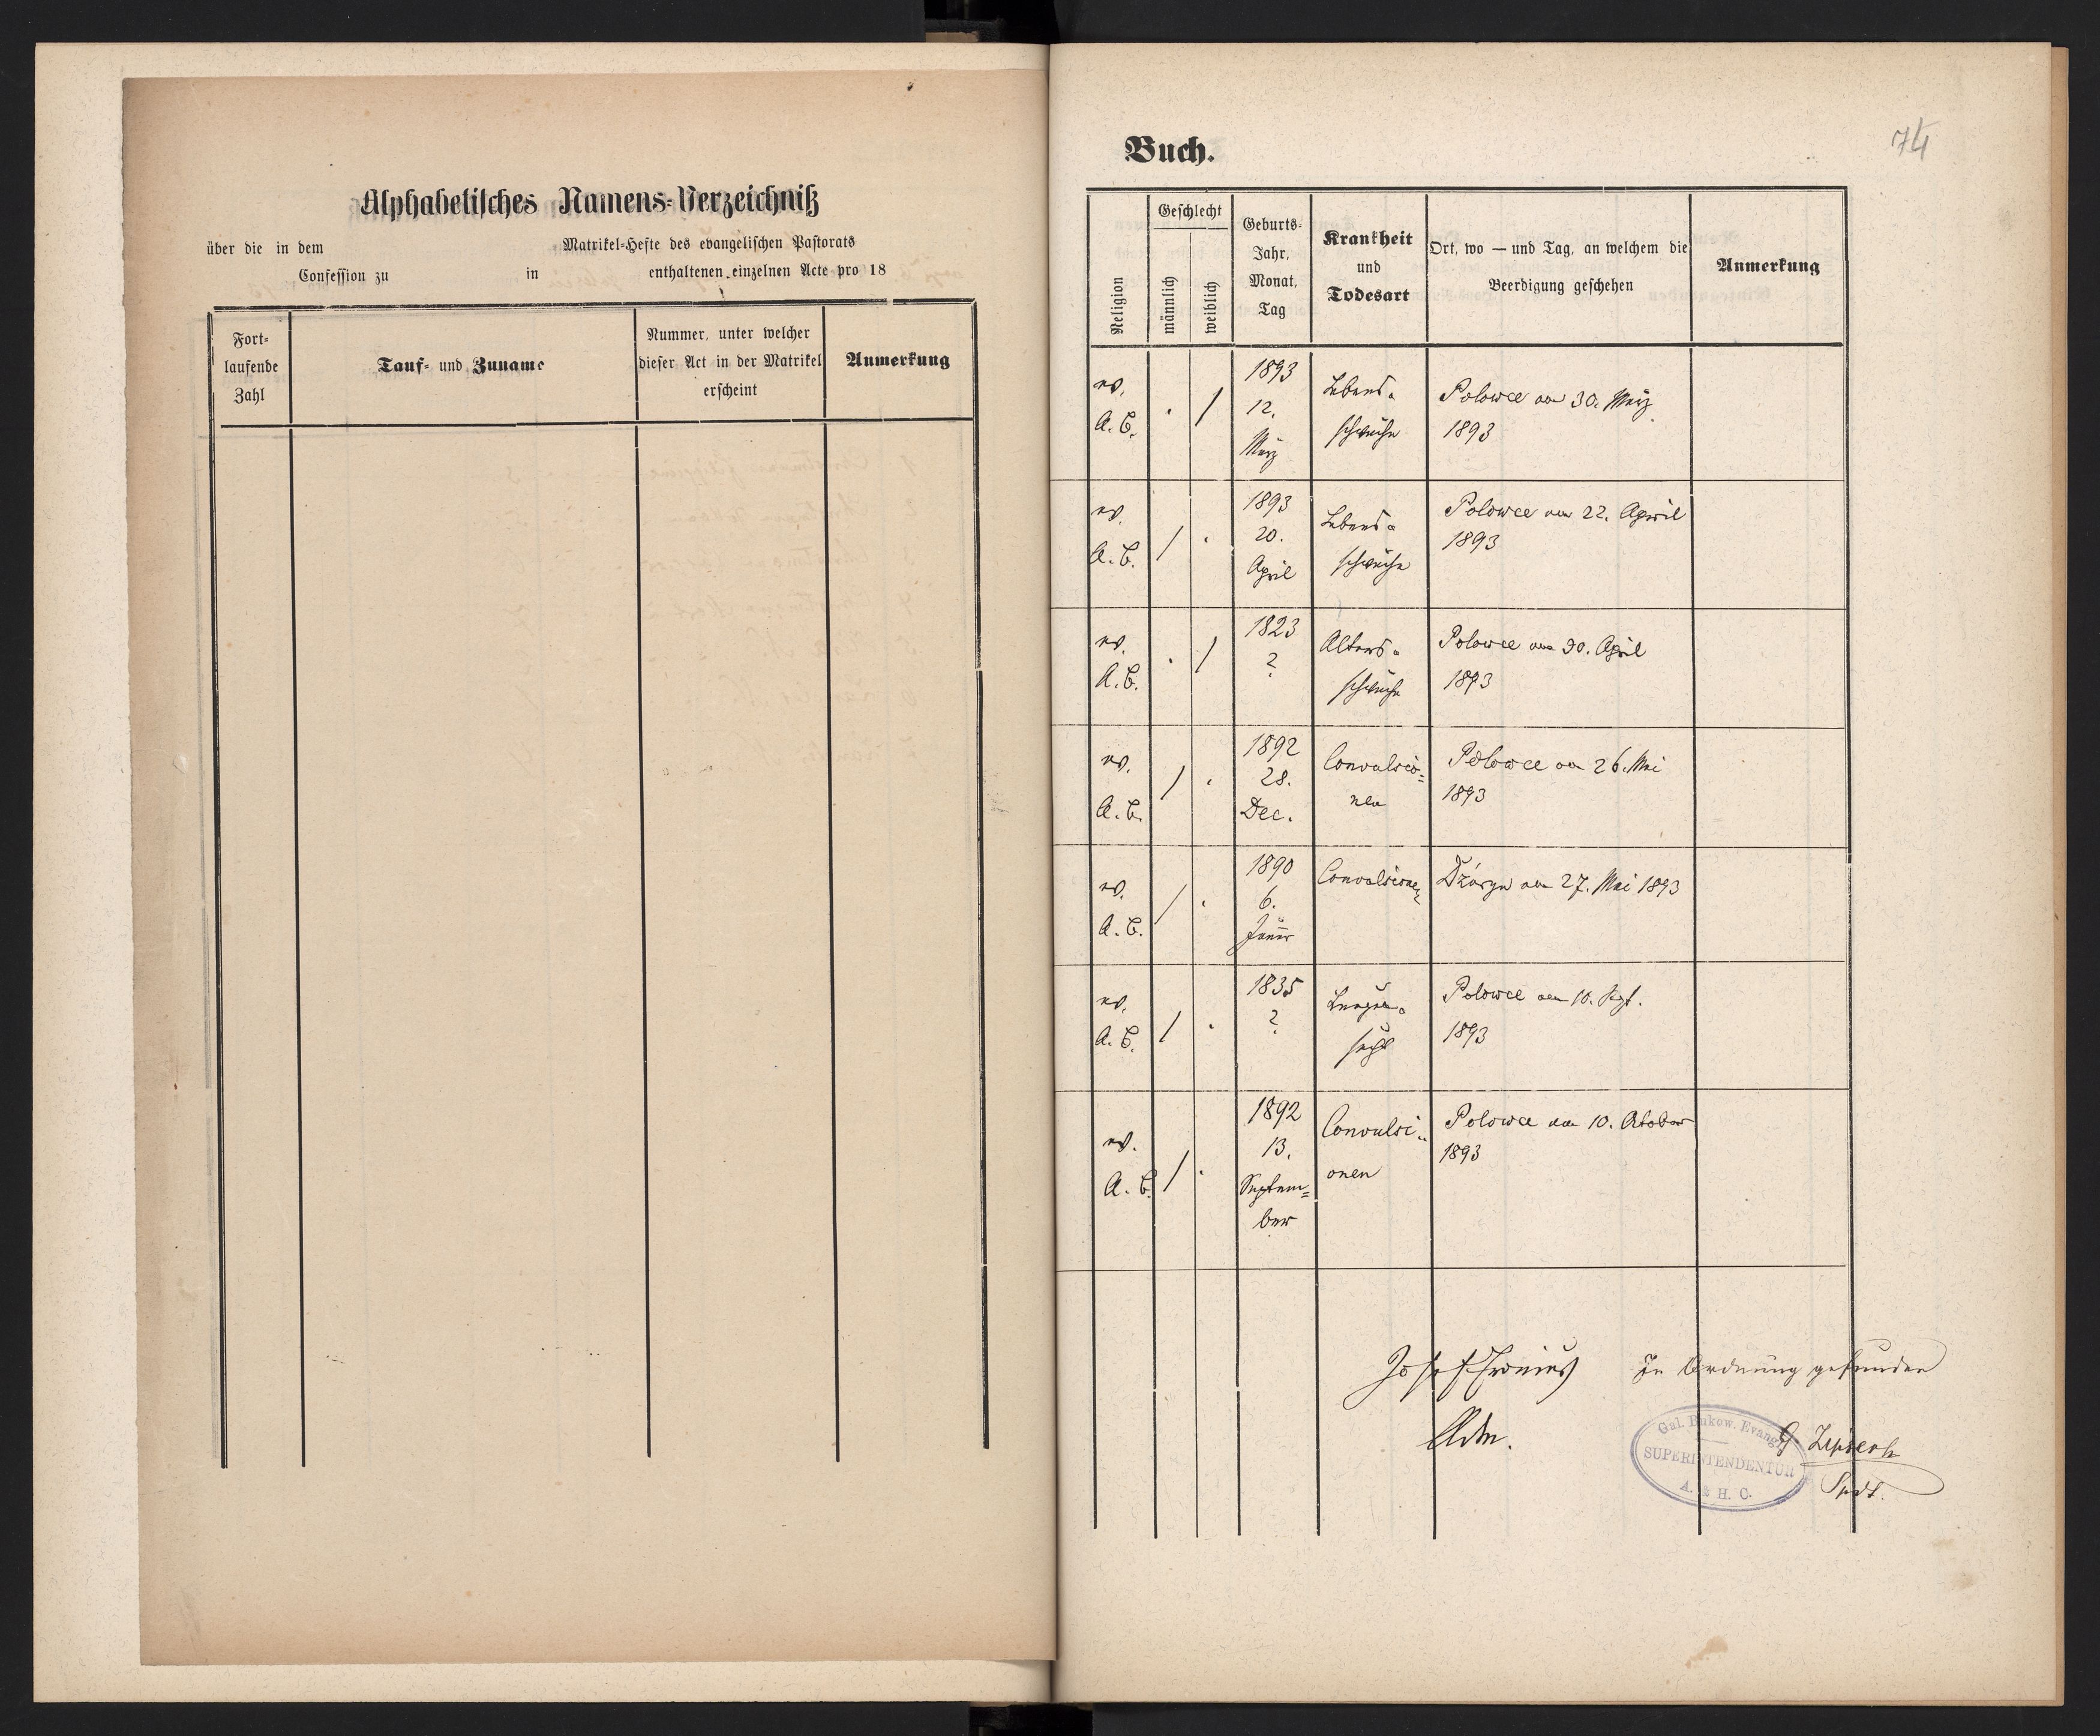 Alphabetisches Namens-Verzeichniß
über die in dem Matrikel-Hefte des evangelischen Pastorats
Confession zu in enthaltenen einzelnen Acte pro 18
Fort-
laufende
Zahl
Tauf- und Zuname
Nummer, unter welcher
dieser Act in der Matrikel
erscheint
Anmerkung
74
Buch.
Religion
Geschlecht
männlich
weiblich
Geburts-
Jahr,
Monat,
Tag
Krankheit
und
Todesart
Ort, wo — und Tag, an welchem die
Beerdigung geschehen
Anmerkung
ev.
A. C.
. /
1893
12.
März
Lebens-
schwäche
Polowce am 30. März
1893
ev.
A. C.
/ .
1893
20.
April
Lebens-
schwäche
Polowce am 22. April
1893
ev.
A. C.
. /
1823
?
Alters-
schwäche
Polowce am 30. April
1893
ev.
A. C.
/ .
1892
28.
Dec.
Convulsio=
nen
Polowce am 26. Mai
1893
ev.
A. C.
/ .
1890
6.
Jänner
Convulsionen
am 27. Mai 1893
ev.
A. C.
/ .
1835
?
Lungen-
sucht
Polowce am 10. Sept.
1893
ev.
A. C.
/ .
1892
13.
Septem=
ber
Convulsi-
onen
Polowce am 10. Oktober
1893
Josef
Adm.
In Ordnung gefunden
Gal. Bukow. Evang.
SUPERINTENDENTUR
A. & H. C.
Spdt.